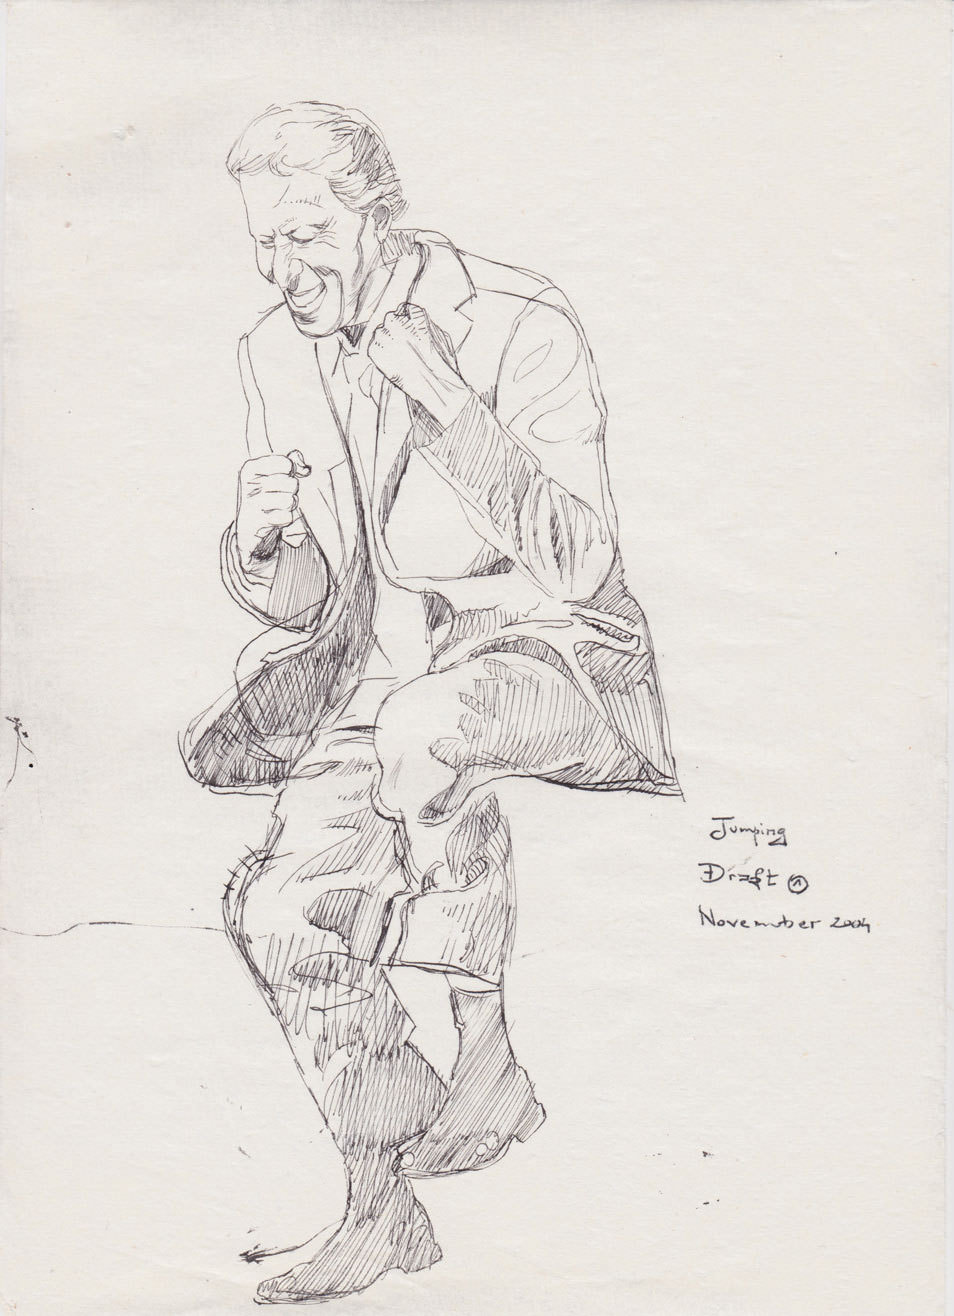 Jumping
Draft ①
November 2004